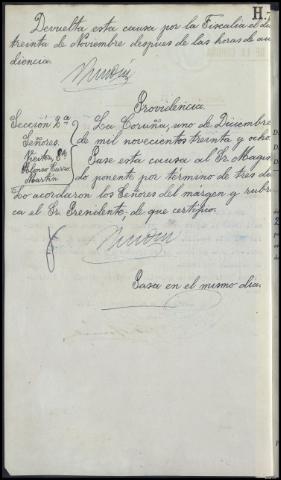 Devuelta esta causa por la Fiscalia el dia
treinta de Noviembre despues de las horas de au
diencia.
Providencia
Sección 2ª
Señores
La Coruña, uno de Diciembre
de mil novecientos treinta y ocho
Pase esta causa al Sr. Magis
do ponente por término de tres di
Lo acordaron los Señores del márgen y rubri
ca el Sr. Presidente, de que certifico.
Pasa en el mismo dia.
H.